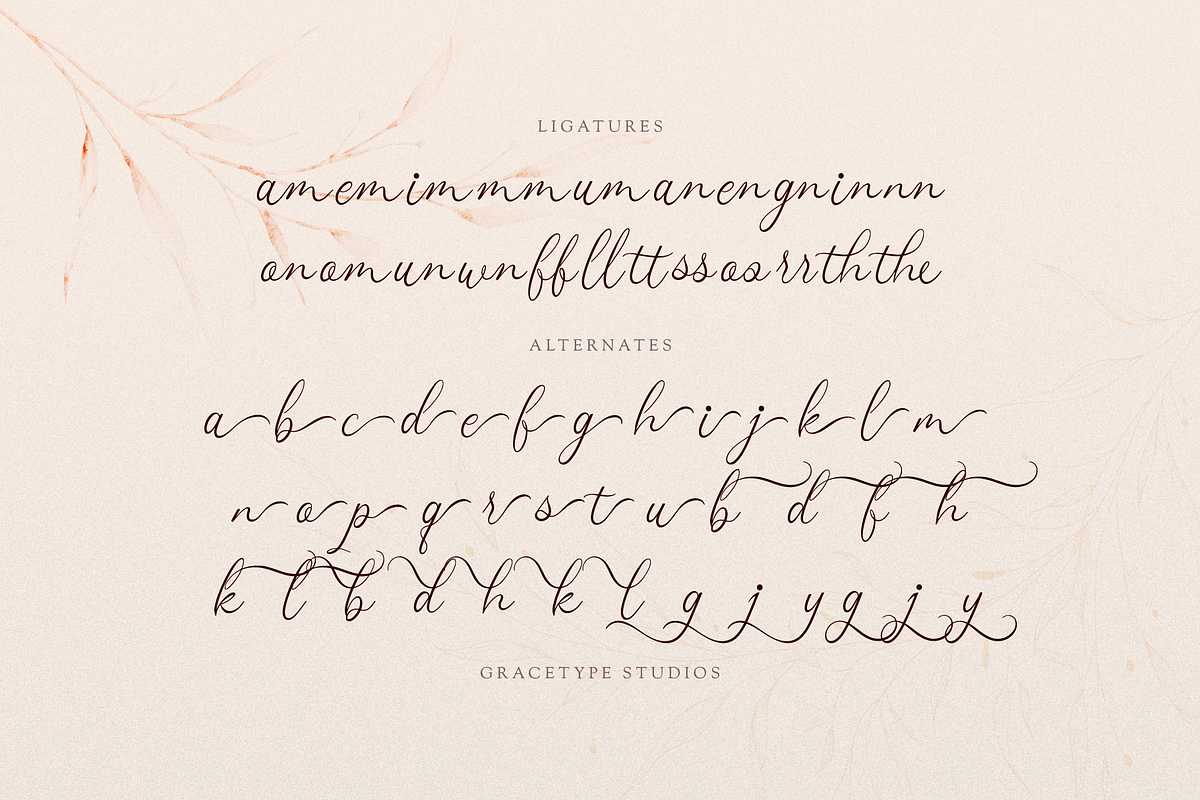 LIGATURES
amemimmmumanengninnn
onomunwnffllttssosrrththe
ALTERNATES
a b c d e f g h i j k l m
n o p q r s t u b d f h
k l b d h k l g j y g j y
GRACETYPE STUDIOS